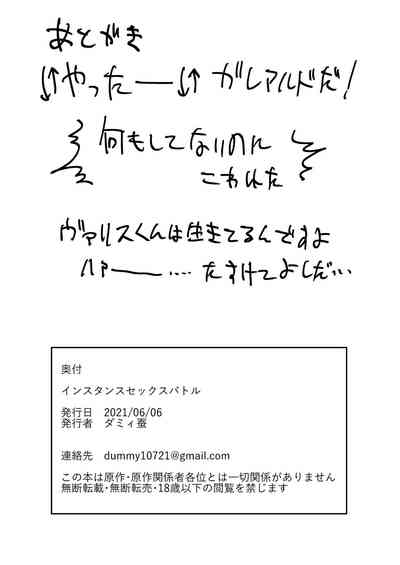 あとがき
↓↑やったー↓↑ ガレアルドだ!
何もしてないのに
こわれた
ヴァリスくんは生きてるんですよ
ハァー…‥ たすけてよしだ‥‥
奥付
インスタンスセックスバトル
発行日 2021/06/06
発行者 ダミィ蚕
連絡先 dummy10721@gmail.com
この本は原作・原作関係者各位とは一切関係がありません
無断転載・無断転売・18歳以下の閲覧を禁じます